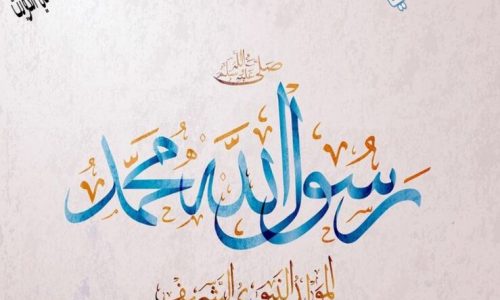 صلى الله عليه وسلم
رسول الله محمد
المولد النبوي الشريف